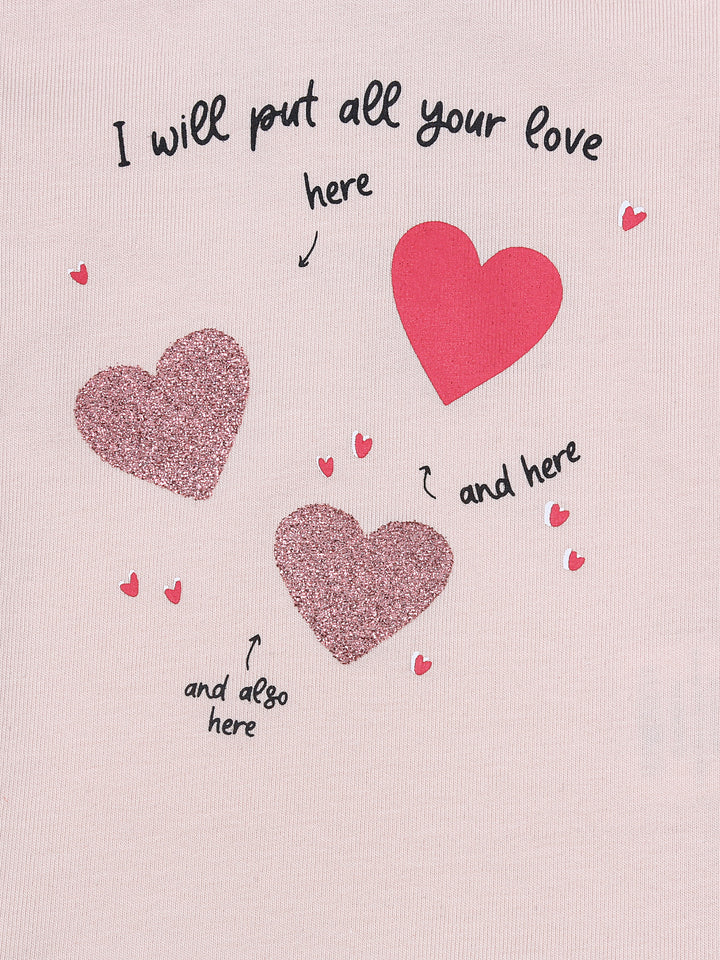 I will put all your love
here
and here
and also
here